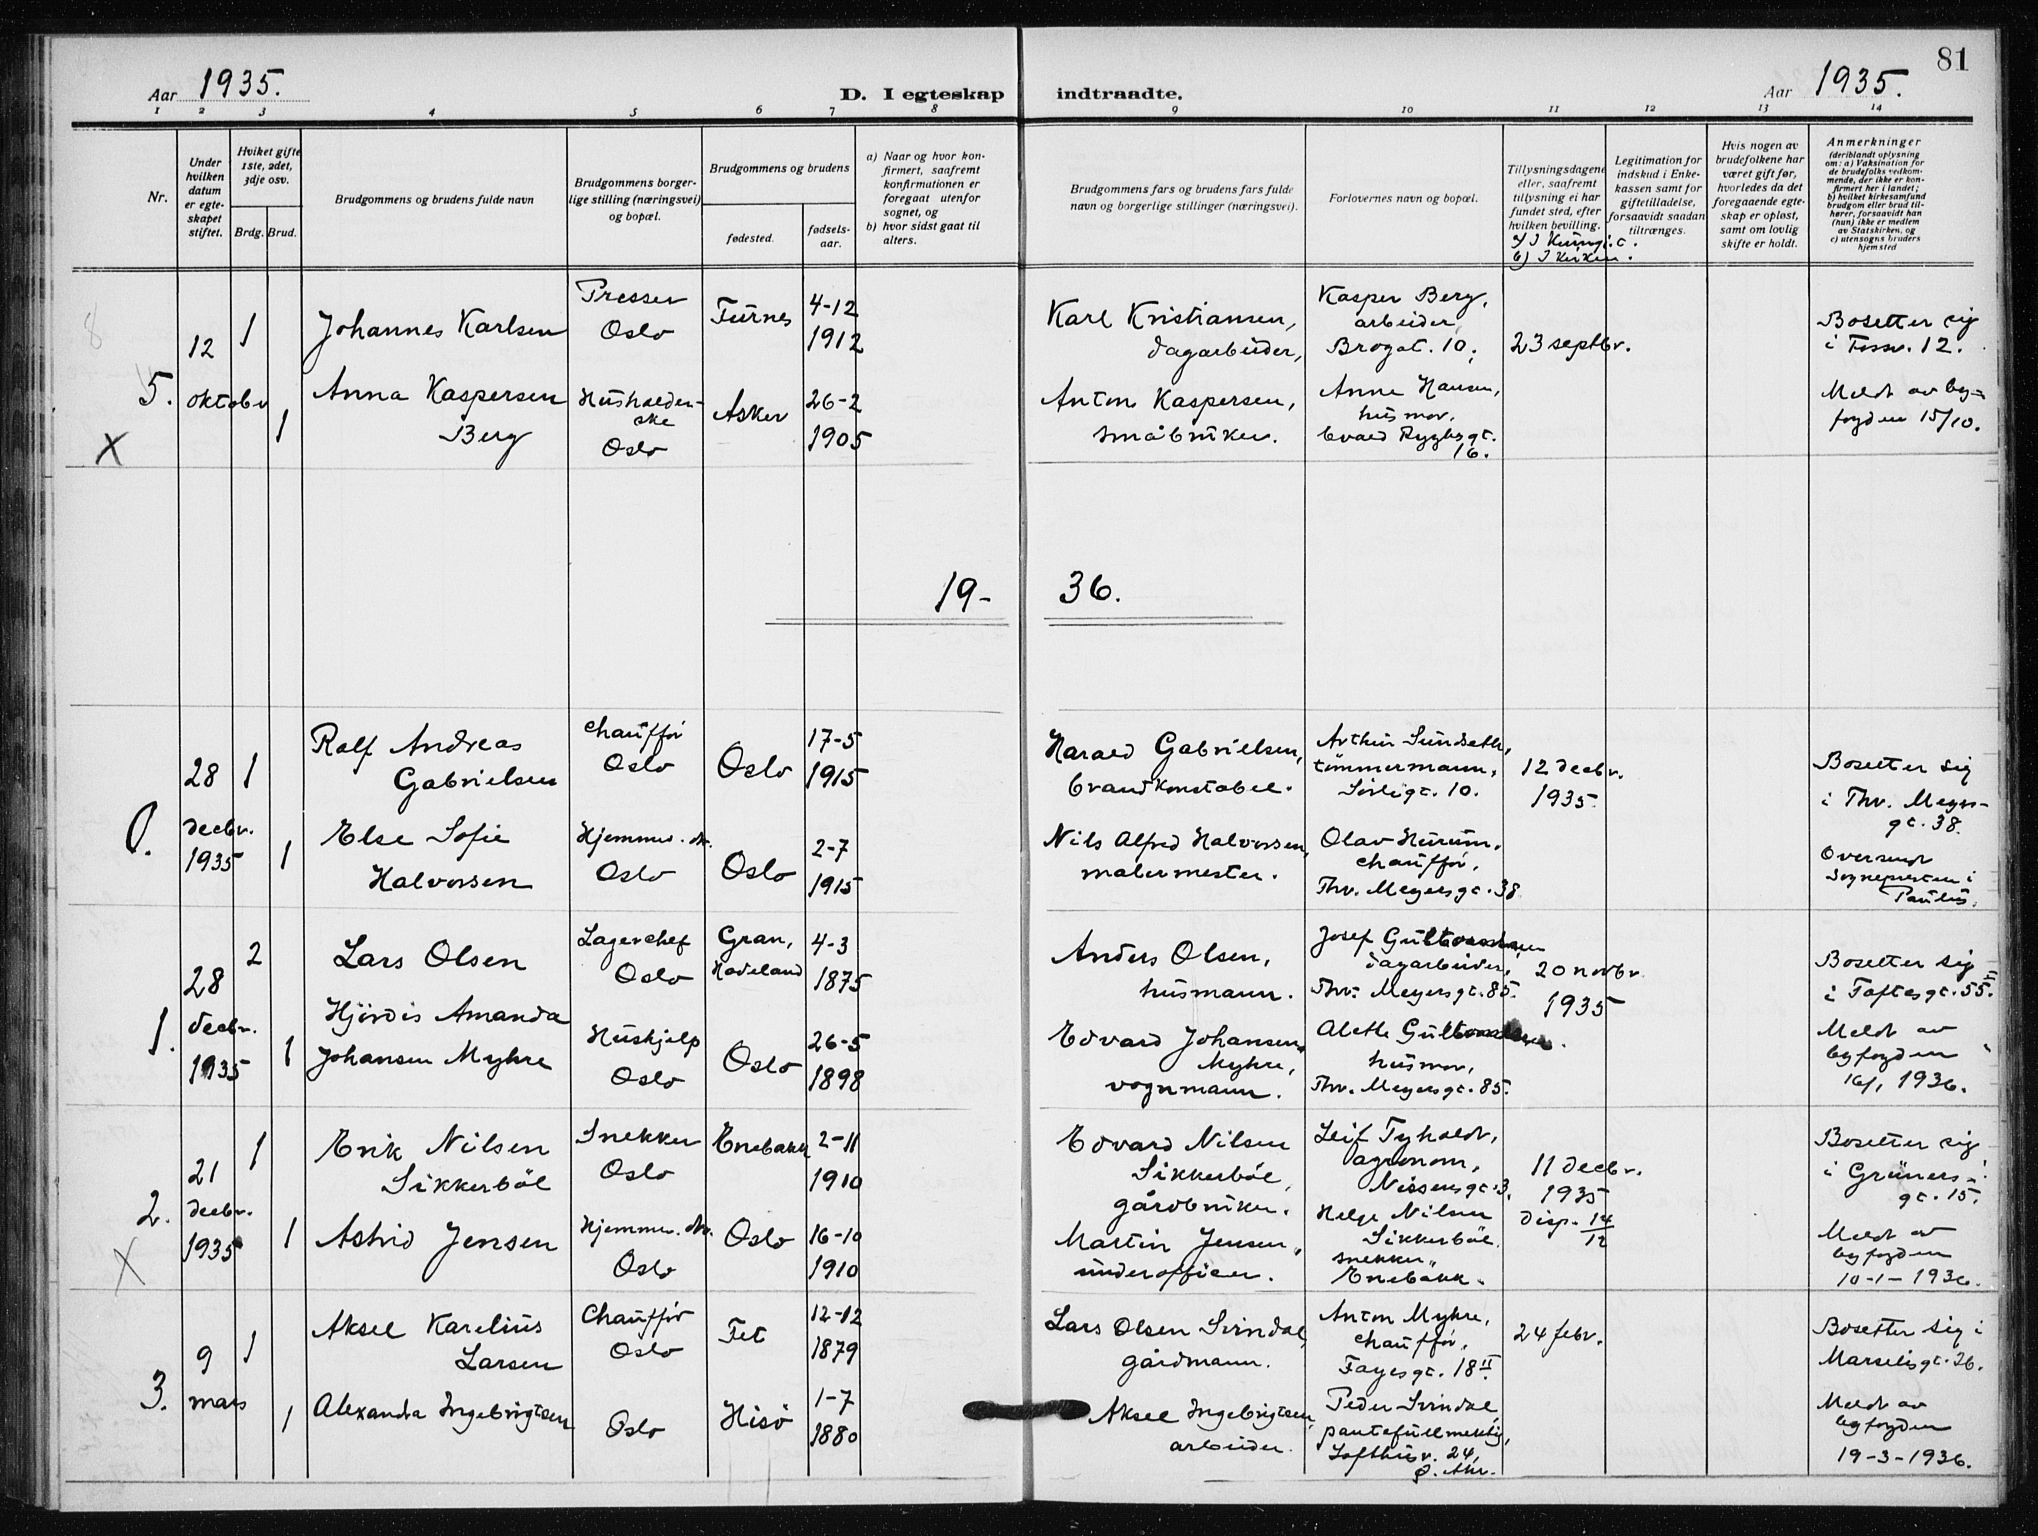 81
Aar 1935.
D. I egteskap indtraadte.
Aar 1935.
1 2 3 4 5 6 7 8 9 10 11 12 13 14
Nr.
Under hvilken datum er egteskapet stiftet.
Hviket gifte 1ste, 2det, 3dje osv.
Brdg. Brud.
Brudgommens og brudens fulde navn
Brudgommens borgerlige stilling (næringsvei) og bopæl.
Brudgommens og brudens
fødested.
fødselsaar.
a) Naar og hvor konfirmert, saafremt konfirmationen er foregaat utenfor sognet, og
b) hvor sidst gaat til alters.
Brudgommens fars og brudens fars fulde navn og borgerlige stillinger (næringsvei).
Forlovernes navn og bopæl.
Tillysningsdagene eller, saafremt tillysning ei har fundet sted, efter hvilken bevilling.
b) I Kirken.
Legitimation for indskud i Enkekassen samt for giftetilladelse, forsaavidt saadan tiltrænges.
Hvis nogen av brudefolkene har været gift før, hvorledes da det foregaaende egteskap er opløst, samt om lovlig skifte er holdt.
Anmerkninger
(deriblandt oplysning om: a) Vaksination for de brudefolks vedkommende, der ikke er konfirmert her i landet; b) hvilket kirkesamfund brudgom eller brud tilhører, forsaavidt han (hun) ikke er medlem av Statskirken, og c) utensogns bruders hjemsted
8
5.
X
12
oktobr
1
1
Johannes Karlsen
Anna Kaspersen
Berg
Presser
Oslo
Husholderske
Oslo
Furnes
Asker
4-12
1912
26-2
1905
Karl Kristiansen,
dagarbeider,
Anton Kaspersen,
småbruker.
Kasper Berg,
arbeider,
Brogt. 10.
Anne Hansen,
husmor,
Evald Ryghsgt.
16.
23 septbr.
Bosetter sig
i Fossv. 12.
Meldt av by-
fogden 15/10.
19-36.
0.
28
decbr.
1935
1
1
Ralf Andreas
Gabrielsen
Else Sofie
Halvorsen
Chauffør
Oslo
Hjemmev. dtr.
Oslo
Oslo
Oslo
17-5
1915
2-7
1915
Harald Gabrielsen,
brandkonstabel.
Nils Alfred Halvorsen,
malermester.
Arthur Sundseth,
tømmermann,
Sørligt. 10.
Olav Hurum,
chauffør,
Thv. Meyersgt. 38
12 decbr.
1935
Bosetter sig
i Thv. Meyers-
gt. 38.
Oversendt
sognepresten i
Paulus.
1.
28
decbr.
1935
2
1
Lars Olsen
Hjørdis Amanda
Johansen Myhre
Lagerchef
Oslo
Hushjelp
Oslo
Gran,
Hadeland
Oslo
4-3
1875
26-5
1898
Anders Olsen,
husmann.
Edvard Johansen
Myhre,
vognmann.
Josef
dagarbeider,
Thv. Meyersgt. 85.
Alette
husmor,
Thv. Meyersgt. 85.
20 novbr.
1935
Bosetter sig
i Toftesgt. 55.
Meldt av
byfogden
16/1 1936.
2.
X
21
decbr.
1935
1
1
Erik Nilsen
Sikkerbøl
Astrid Jensen
Snekker
Oslo
Hjemmev. dtr.
Oslo
Enebakk
Oslo
2-11
1910
16-10
1910
Edvard Nilsen
Sikkerbøl,
gårdbruker.
Martin Jensen,
underofficer.
Leif Tyholdt,
agronom,
Nissensgt. 3.
Helge Nilsen
Sikkerbøl
snekker,
Enebakk.
11 decbr.
1935
disp. 14/12
Bosetter sig
i Grüners-
gt. 15.
Meldt av
byfogden
10-1-1936.
3.
9
mars
1
1
Aksel Karelius
Larsen
Alexandra Ingebrigtsen
Chauffør
Oslo
Oslo
Fet
Hisø
12-12
1879
1-7
1880
Lars Olsen Svindal,
gårdmann.
Aksel Ingebrigtsen,
arbeider.
Anton Myhre,
chauffør,
Fayesgt. 18 II.
Peder Svindal,
pantefullmektig,
Lofthusv. 24,
Ø. Aker.
24 febr.
Bosetter sig i
Marselisgt. 26.
Meldt av
byfogden
19-3-1936.